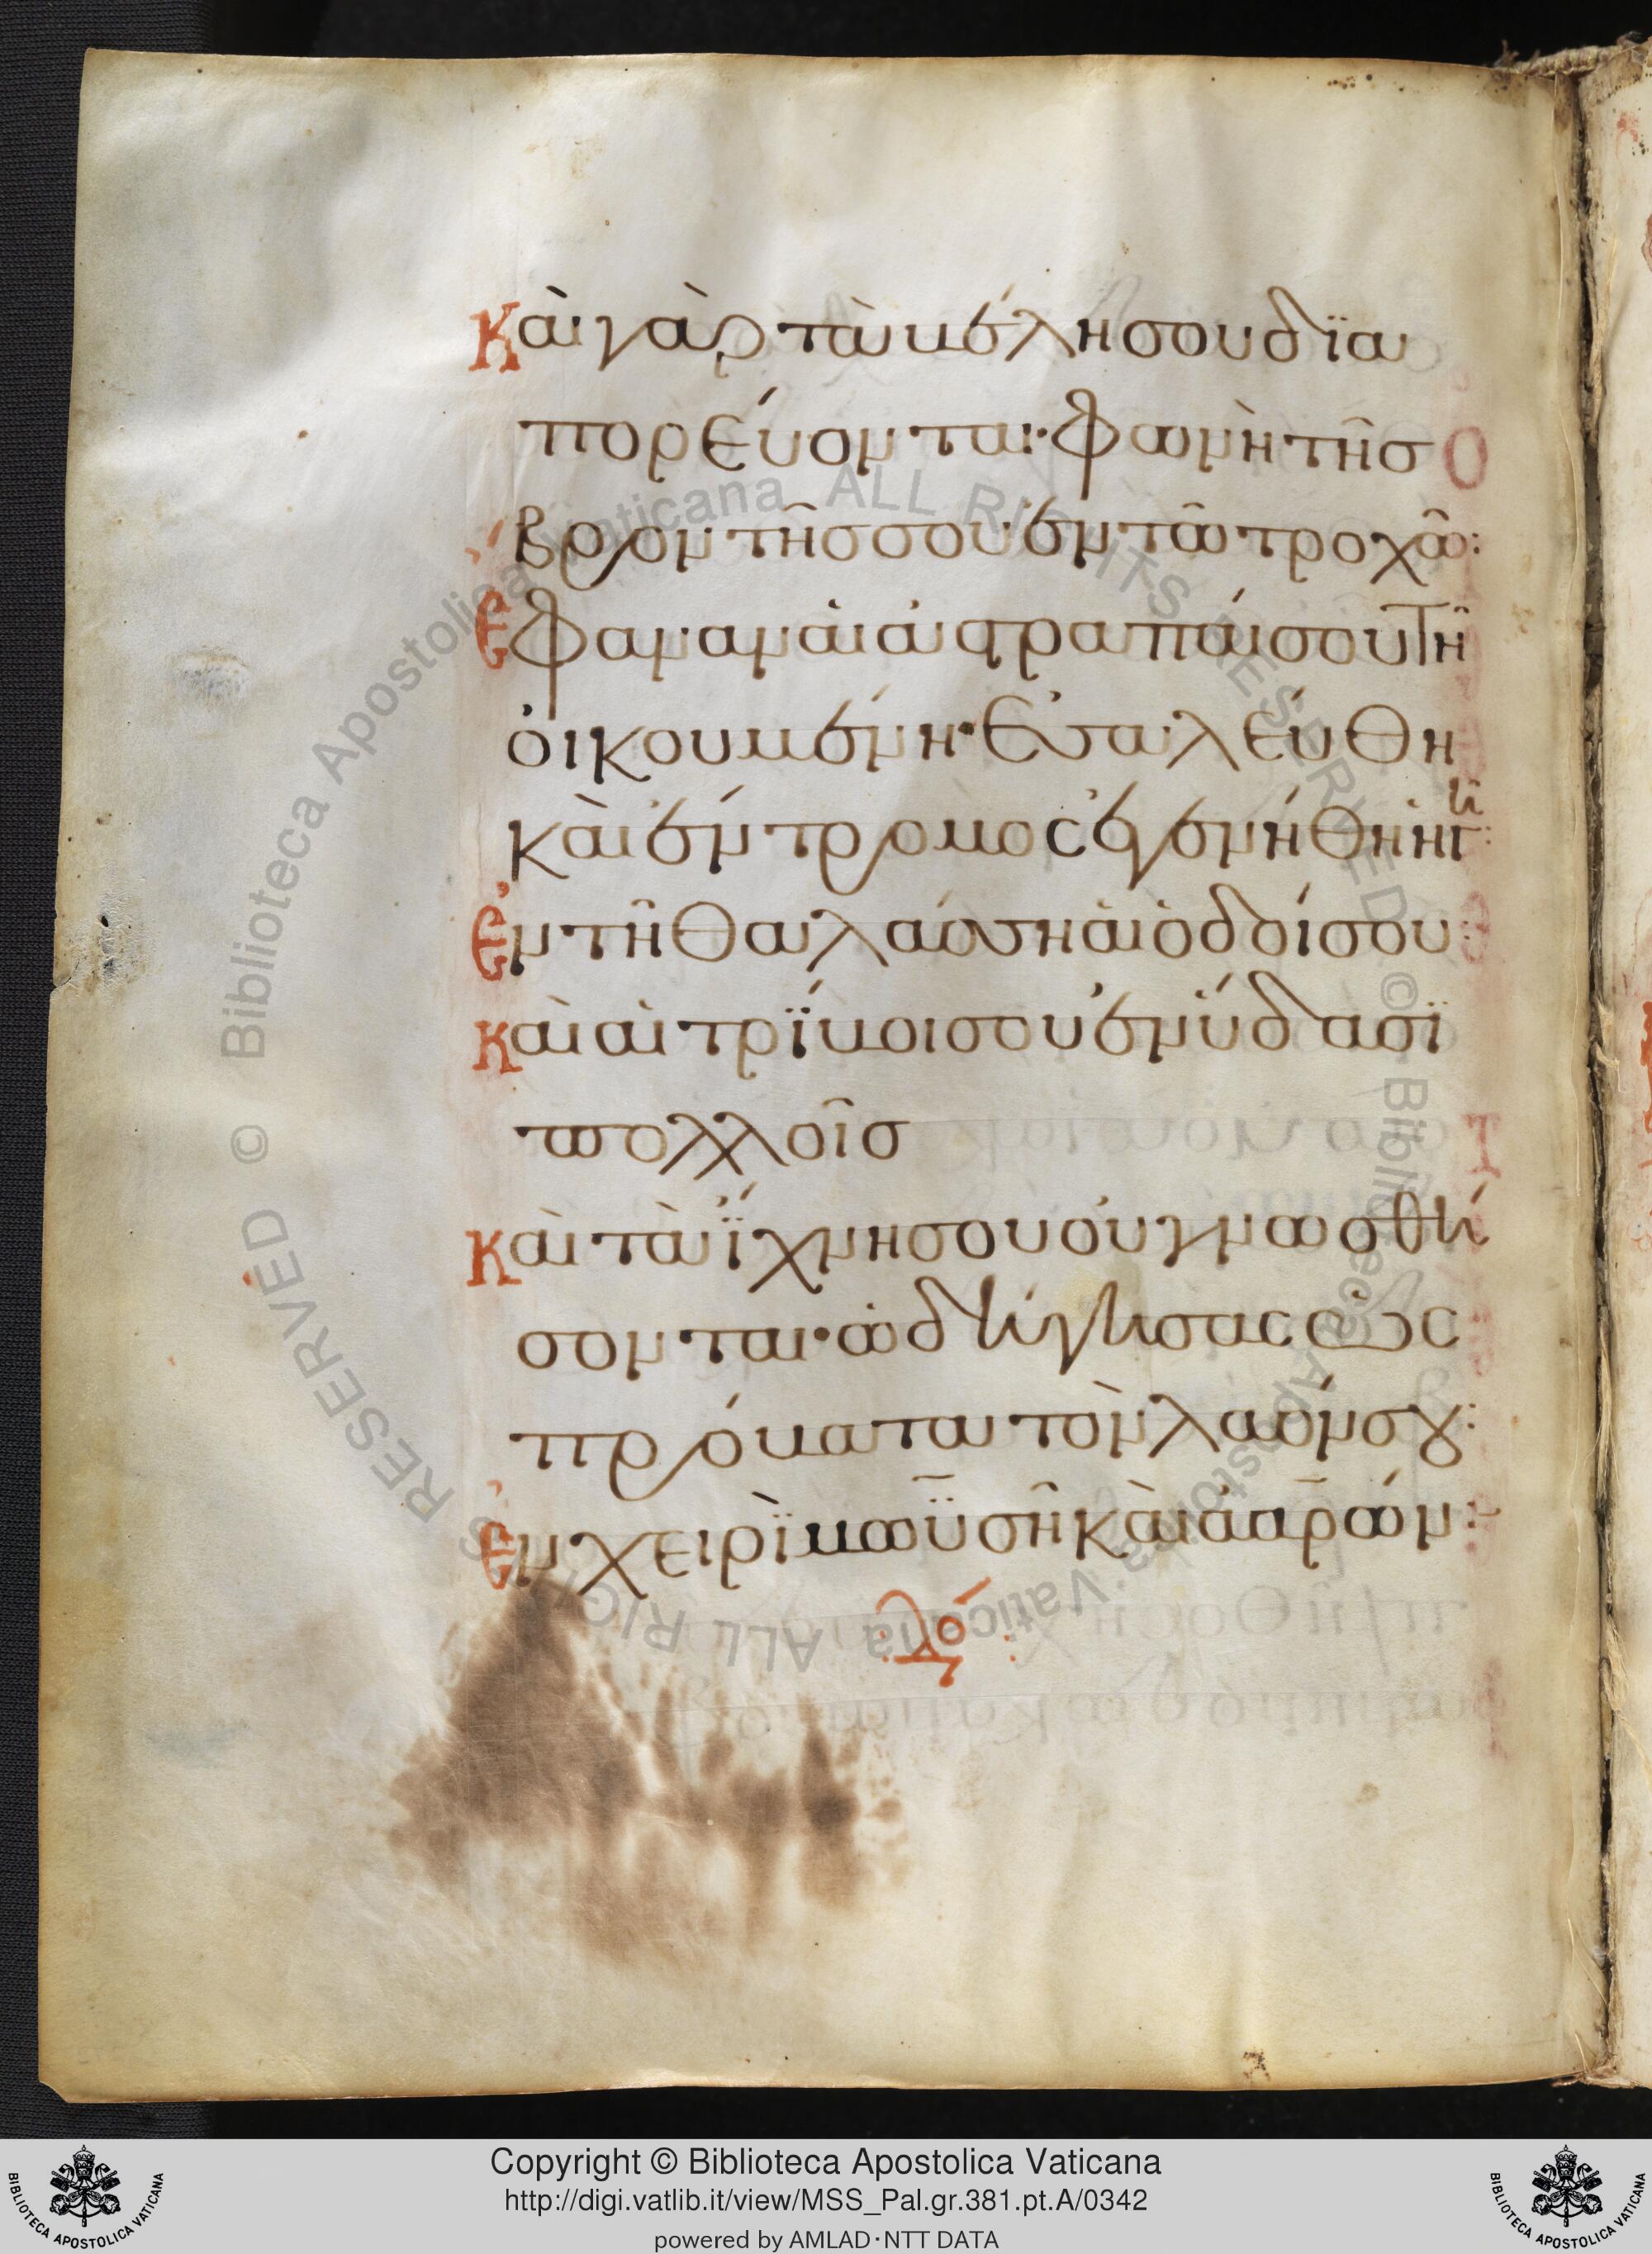 Καὶ γὰρ τὰ μέλη σου δϊα
πορεύονται· φωνὴ τῆσ
βροντῆσ σου ἐν τῶ τροχῶ:
Ἔφαναν αἱ ἀστραπάι σου τῆ
ὀικουμένη· ἐσαλεύθη
καὶ ἔντρομος ἐγενήθη ἡ γῆ:
Ἐν τῆ θαλάσση ἁι ὁδοί σου
καὶ αἱ τρΐβοι σου ἐν ὕδασϊ
πολλοῖσ
Καὶ τὰ ἴχνη σου οὐ γνωσθή
σονται· ὡδήγησας ὡς
πρόβατα τὸν λαόν σου:
Ἐν χειρὶ μωϋσῆ καὶ ἀαρών:
Copyright © Biblioteca Apostolica Vaticana
http://digi.vatlib.it/view/MSS_Pal.gr.381.pt.A/0342
powered by AMLAD·NTT DATA
© Biblioteca Apostolica Vaticana ALL RIGHTS RESERVED
© Biblioteca Apostolica Vaticana ALL RIGHTS RESERVED
BIBLIOTECA APOSTOLICA VATICANA
BIBLIOTECA APOSTOLICA VATICANA